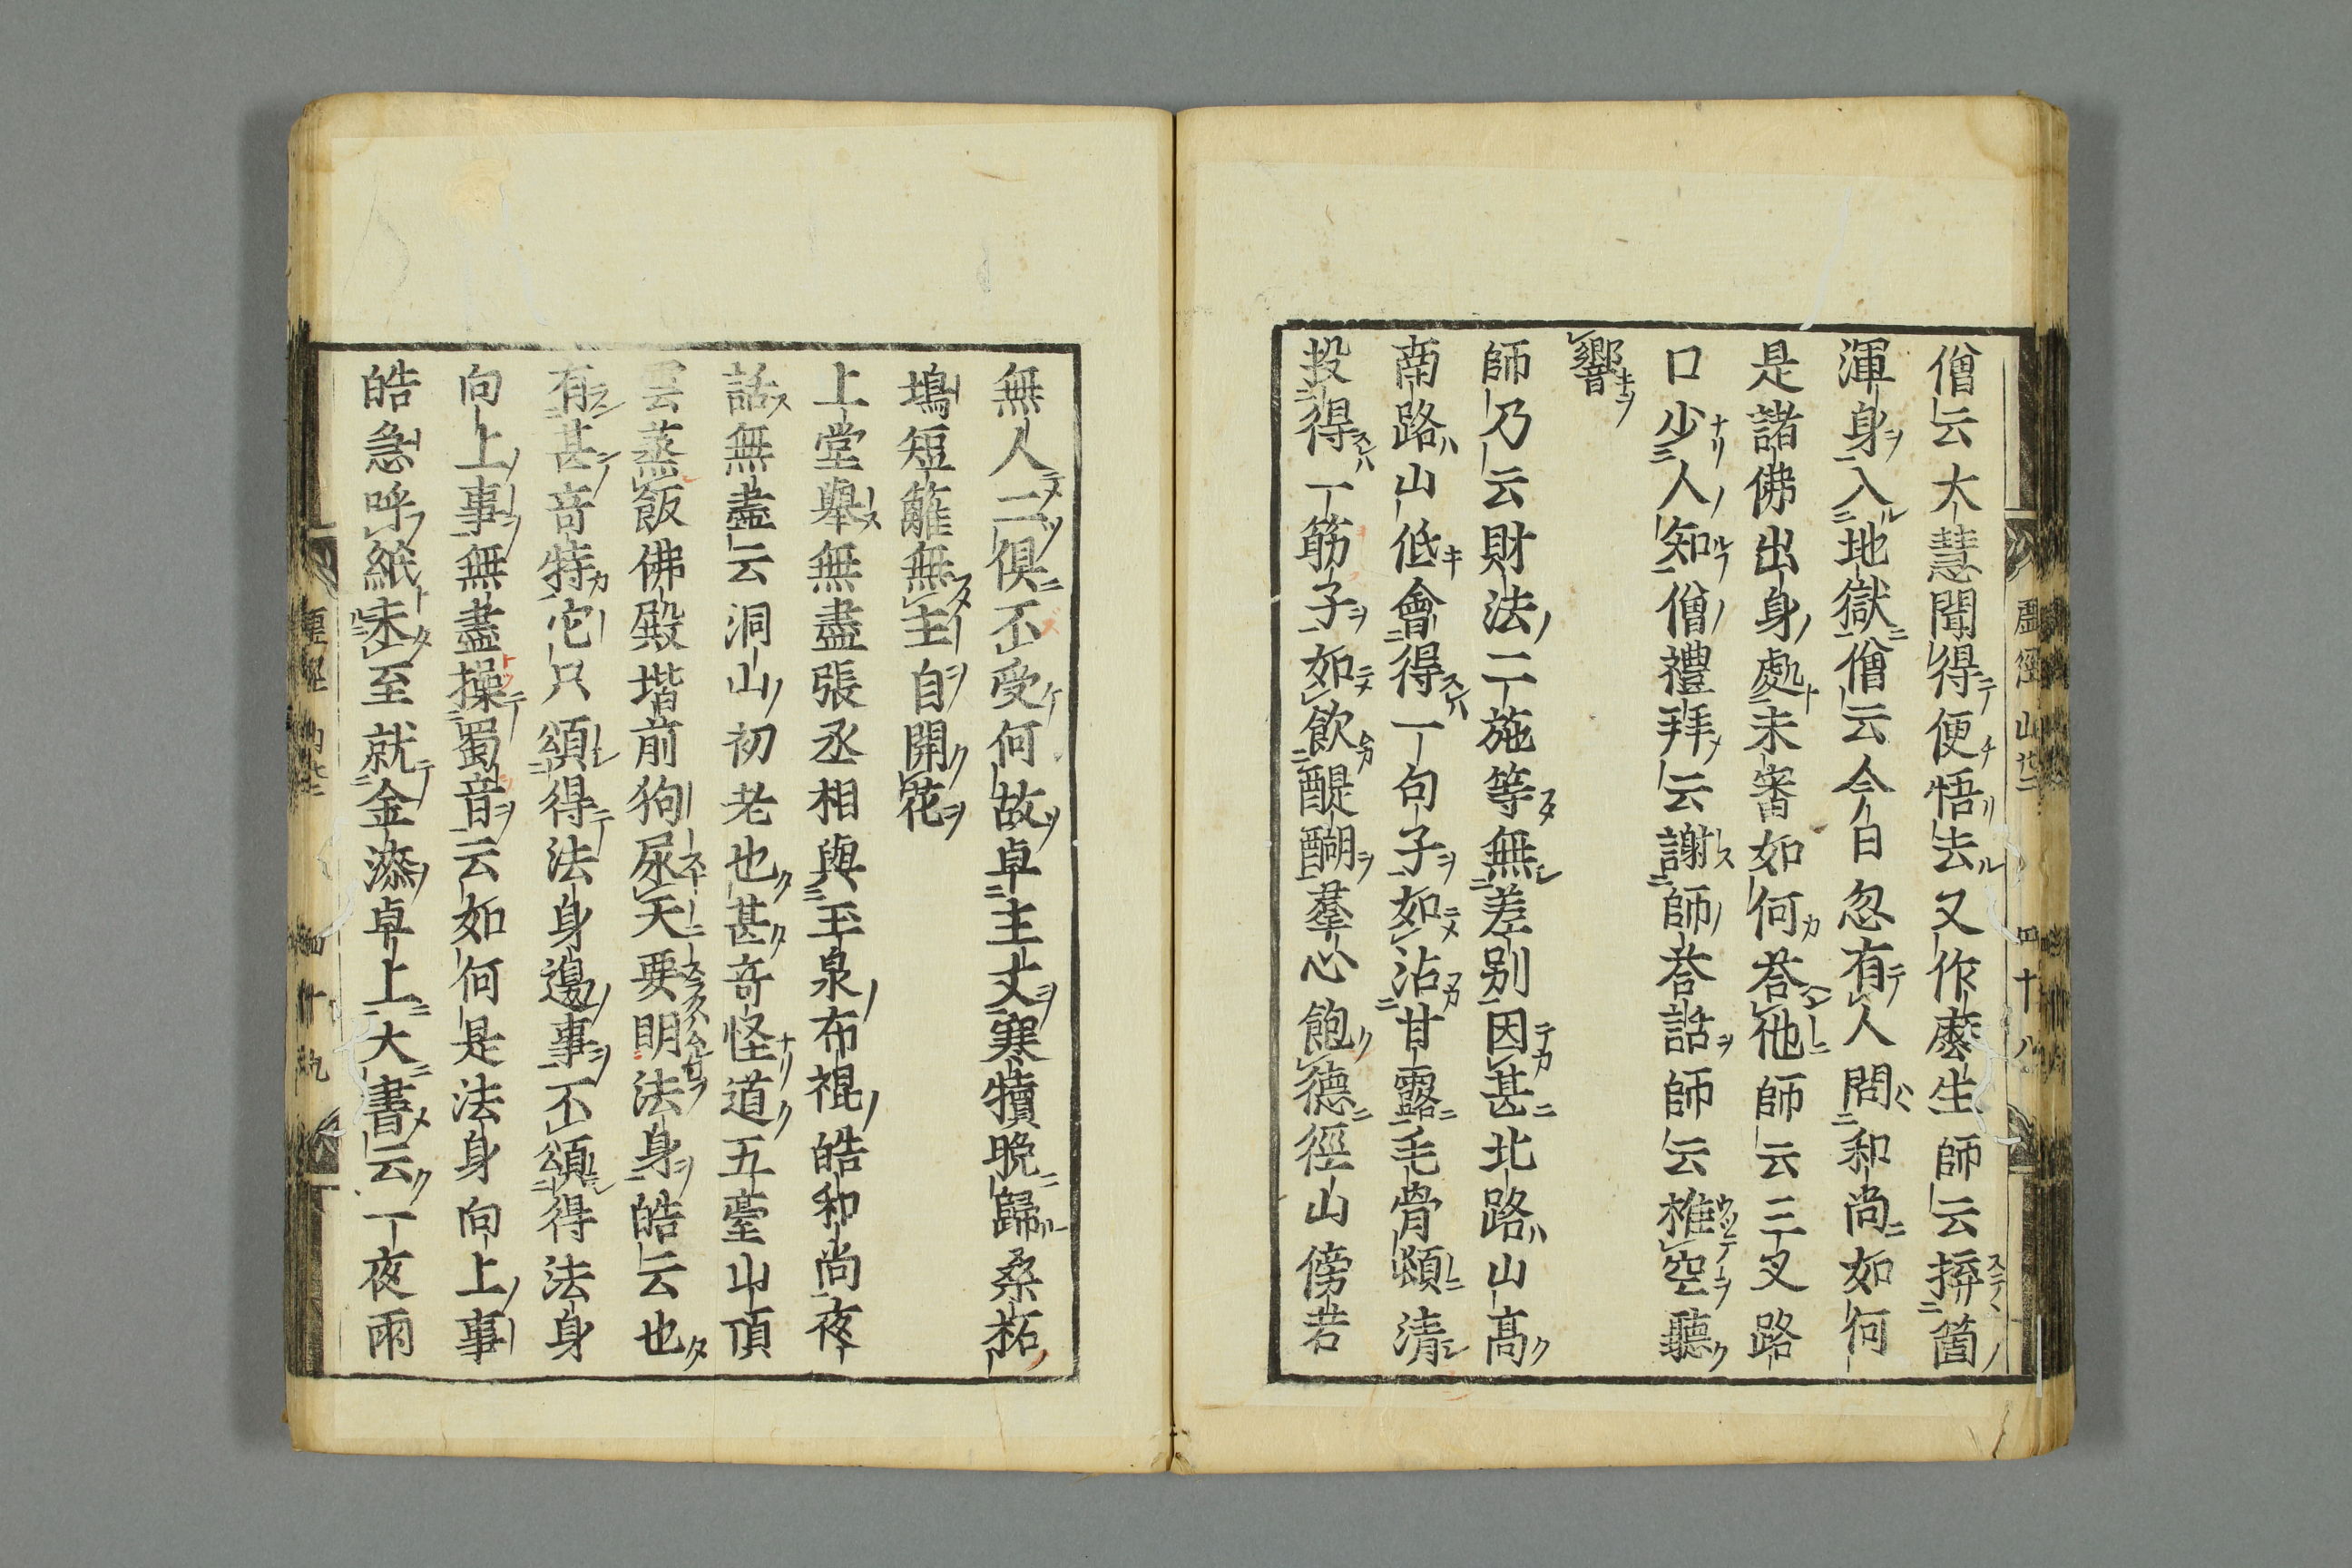 僧云大慧聞得便悟去又作麽生師云捹箇
渾身入地獄僧云今日忽有人問和尚如何
是諸佛出身處未審如何荅他師云三叉路
口少人知僧禮拜云謝師荅話師云推空聽
響
師乃云財法二施等無差別因甚北路山高
南路山低會得一句子如沾甘露毛骨頓清
投得一筯子如飲醍醐羣心飽德徑山傍若
無人二俱不受何故卓主丈寒犢晩歸桑柘
塢短籬無主自開花
上堂舉無盡張丞相與玉泉布裩皓和尚夜
話無盡云洞山初老也甚竒怪道五臺山頂
雲蒸飯佛殿堦前狗尿天要明法身皓云也
有甚竒特它只頌得法身邊事不頌得法身
向上事無盡操蜀音云如何是法身向上事
皓急呼紙未至就金漆卓上大書云一夜雨